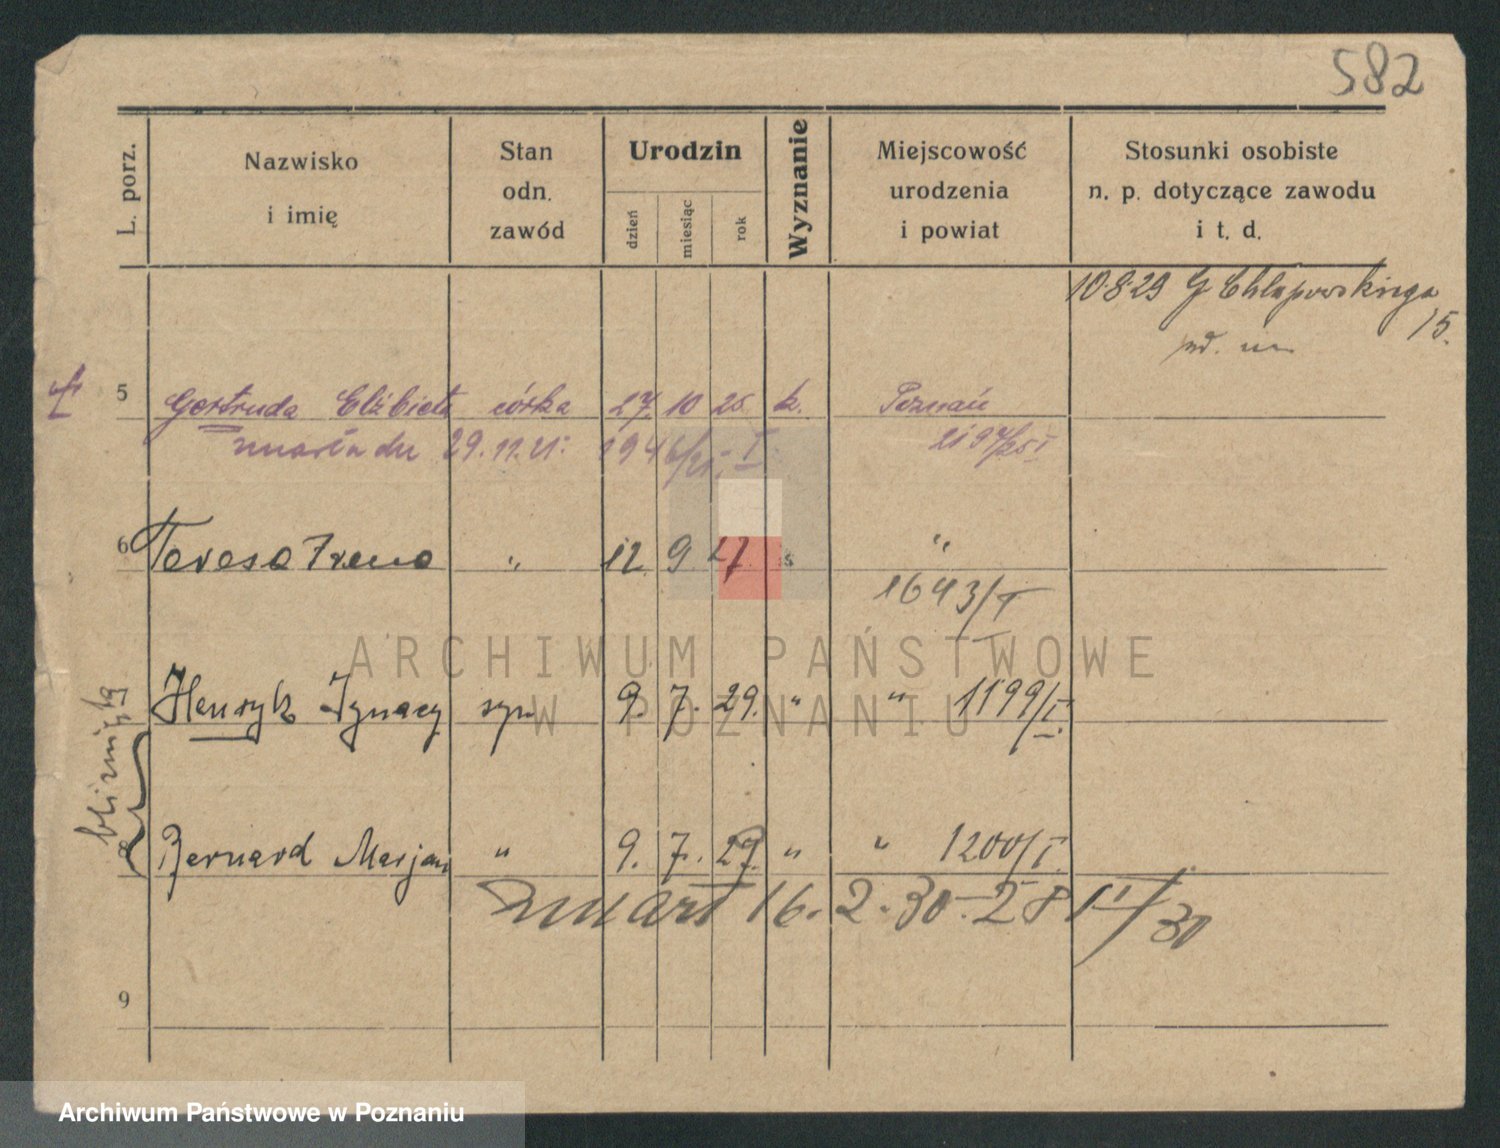 582
L. porz.
Nazwisko
i imię
Stan
odn.
zawód
Urodzin
dzień
miesiąc
rok
Wyznanie
Miejscowość
urodzenia
i powiat
Stosunki osobiste
n. p. dotyczące zawodu
i t. d.
10.8.29 G Chłapowskiego
15.
5 Gertruda Elżbieta córka 27 10 25 k. Poznań
zmarła dn 29.11.21: 1946/21. I 2197/25 I
6 Teresa Irena " 12. 9. 27. " "
1643/I
Henryk Ignacy syn 9. 7. 29. " " 1199/I.
bliźnięta
8 Bernard Marjan " 9. 7. 29. " " 1200/I.
zmarł 16. 2. 30. - 28 II/30
9
ARCHIWUM PAŃSTWOWE
W POZNANIU
Archiwum Państwowe w Poznaniu